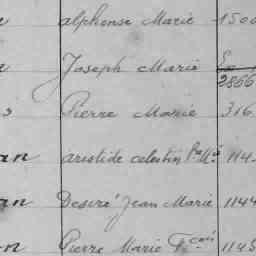 alphonse Marie 1500
Joseph Marie 2866
s Pierre Marie 316
an aristide celestin Pre Mie 114
an Desiré Jean Marie 1144
on Pierre Marie Fcois 1145